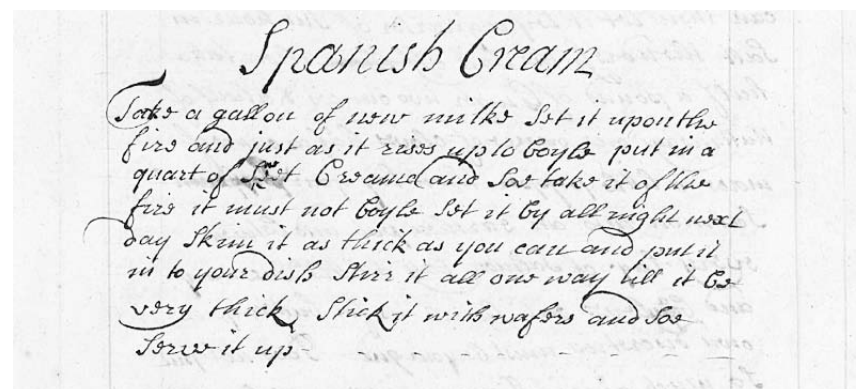 Spanish Cream
Take a gallon of new milke set it upon the
fire and just as it rises up to boyle put in a
quart of Swet Creame and soe take it of the
fire it must not boyle set it by all night next
day skim it as thick as you can and put it
in to your dish stirr it all one way till it be
very thick stick it with wafers and soe
serve it up